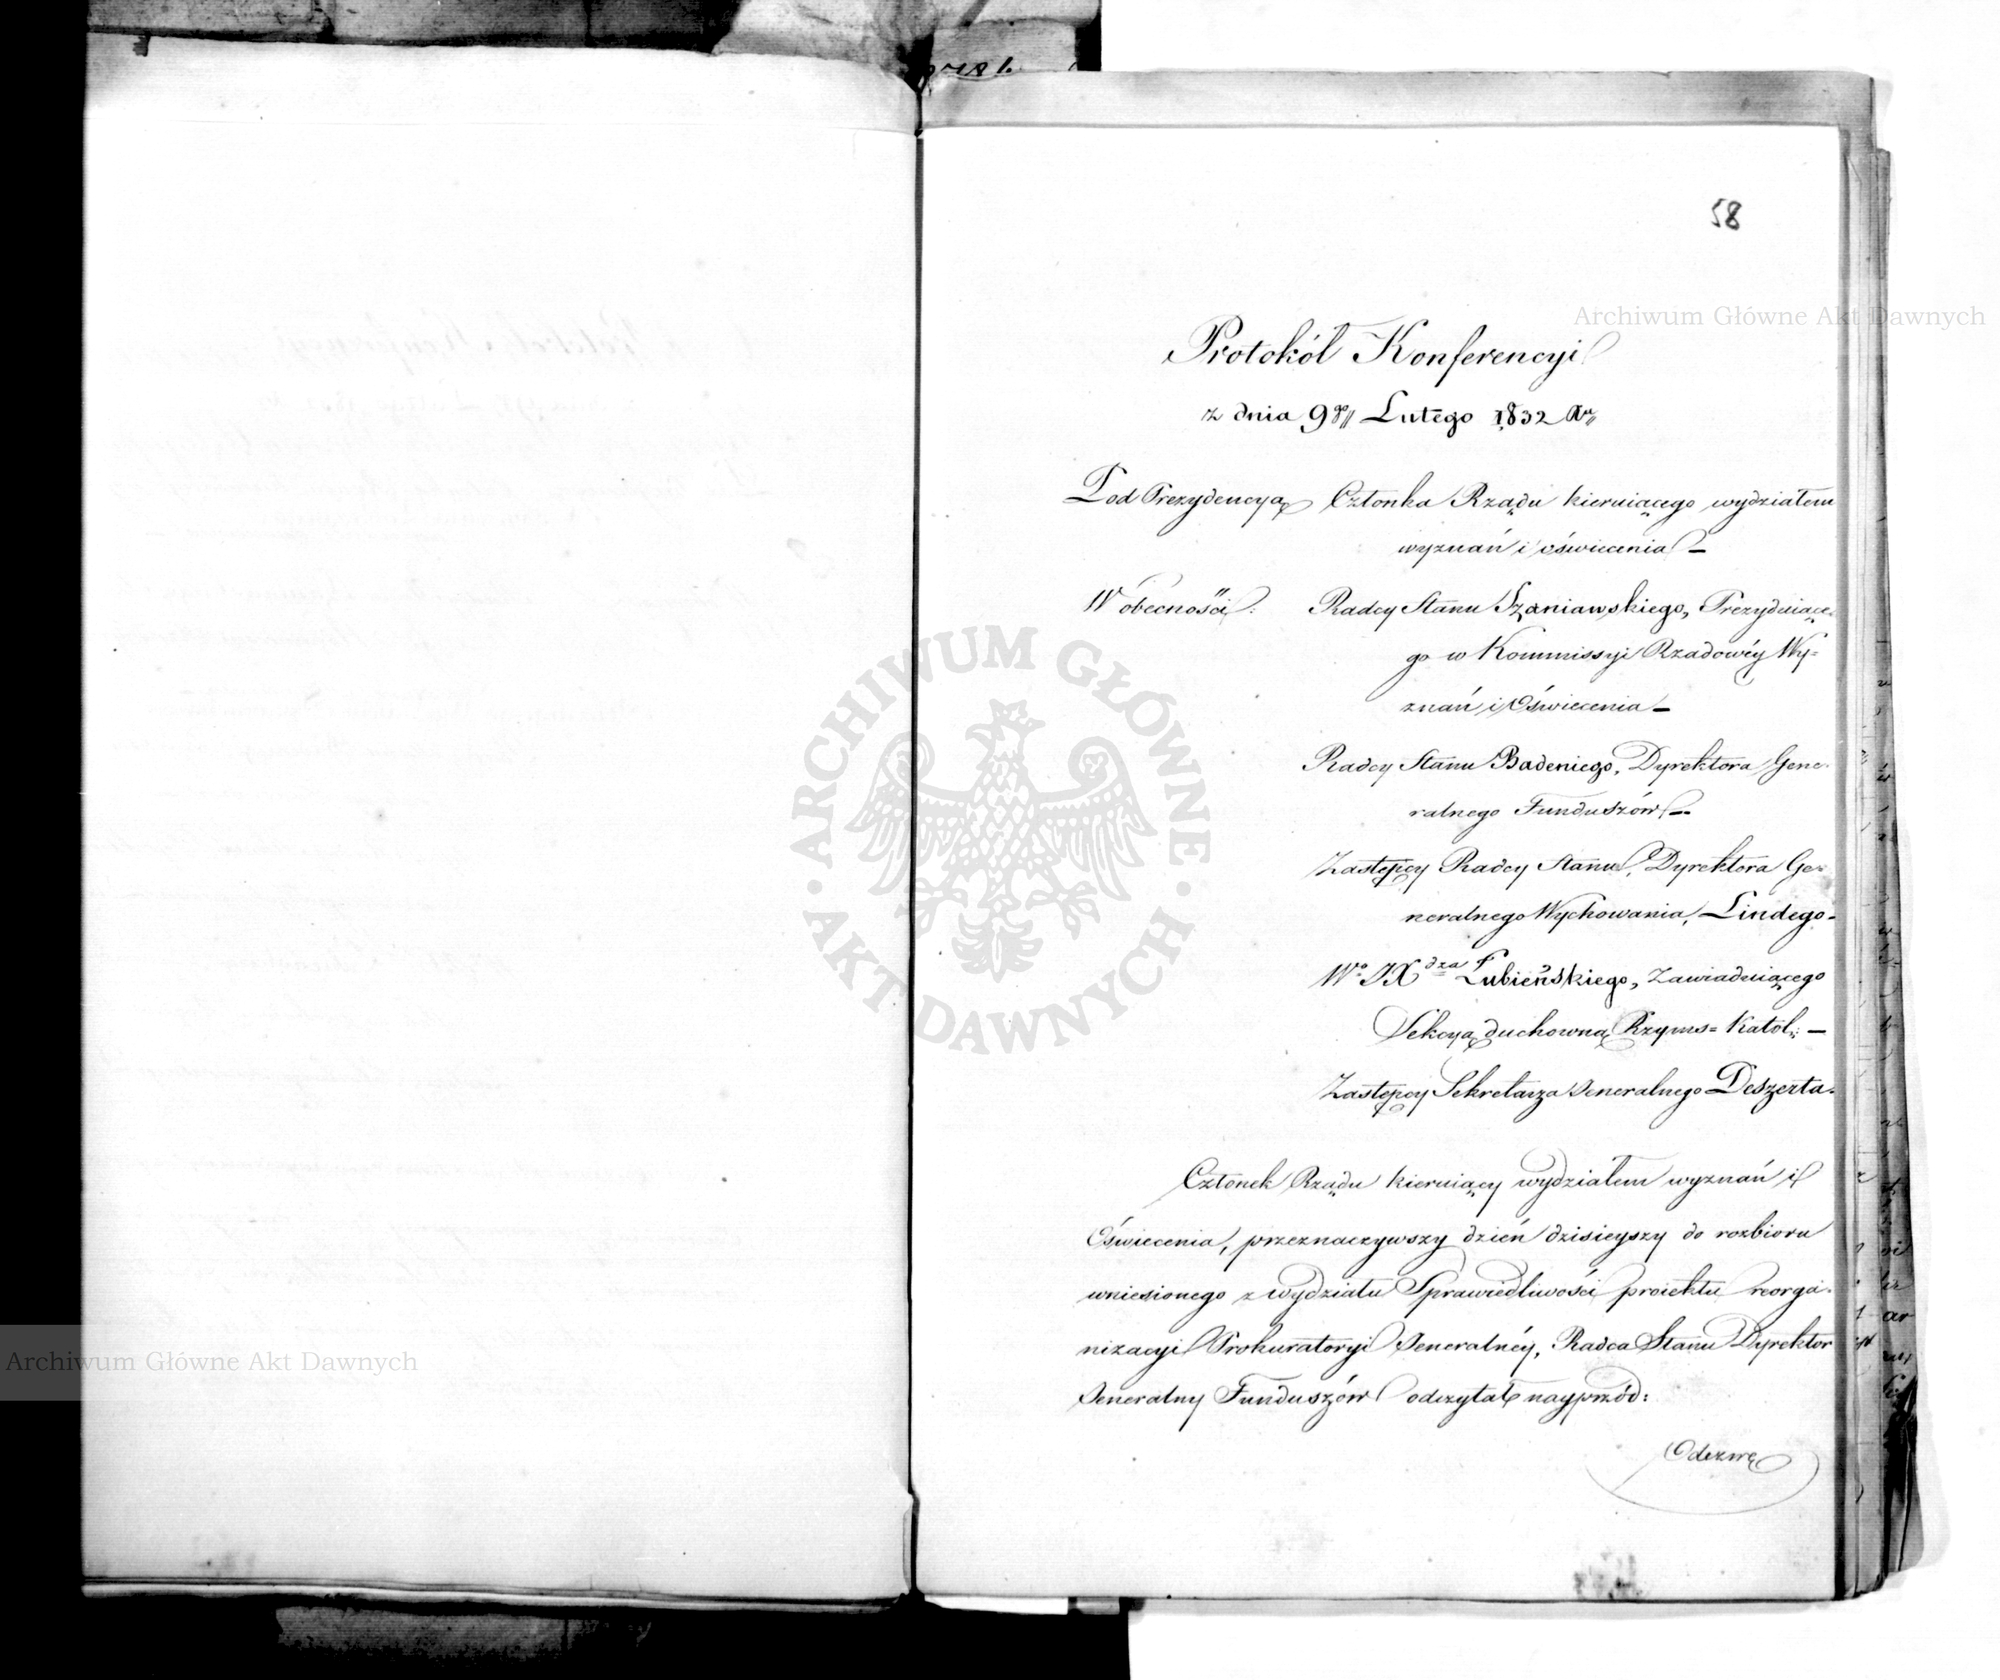 58
Protokół Konferencyi
z dnia 9go Lutego 1832 Ru
Pod Prezydencyą Członka Rządu kieruiącego wydziałem
wyznań i oświecenia –
W obecności: Radcy Stanu Szaniawskiego, Prezyduiące-
go w Kommissyi Rządowéy Wy=
znań i Oświecenia –
Radcy Stanu Badeniego, Dyrektora Gene-
ralnego Funduszów –
Zastępcy Radcy Stanu, Dyrektora Ge-
neralnego Wychowania, Lindego –
Wo JXdza Łubieńskiego, Zawiaduiącego
Sekcyą duchowną Rzyms= Katol: –
Zastępcy Sekretarza Jeneralnego Deszerta.
Członek Rządu kieruiący wydziałem wyznań i
Oświecenia, przeznaczywszy dzień dzisieyszy do rozbioru
wniesionego z wydziału Sprawiedliwości proiektu reorga-
nizacyi Prokuratoryi Jeneralnéy, Radca Stanu Dyrektor
Jeneralny Funduszów odczytał nayprzód:
Odezwę
Archiwum Główne Akt Dawnych
Archiwum Główne Akt Dawnych
ARCHIWUM GŁÓWNE
· AKT DAWNYCH ·